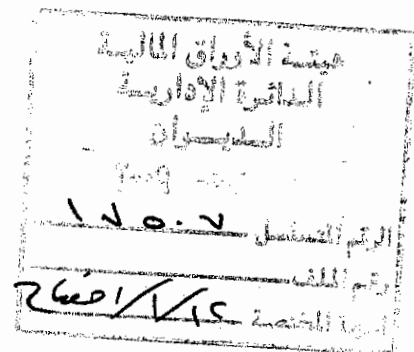 هيئة الأوراق المالية
الدائرة الإدارية
الديوان
الرقم المتسلسل ١٧٥٠٧
رقم الملف
الجهة المختصة